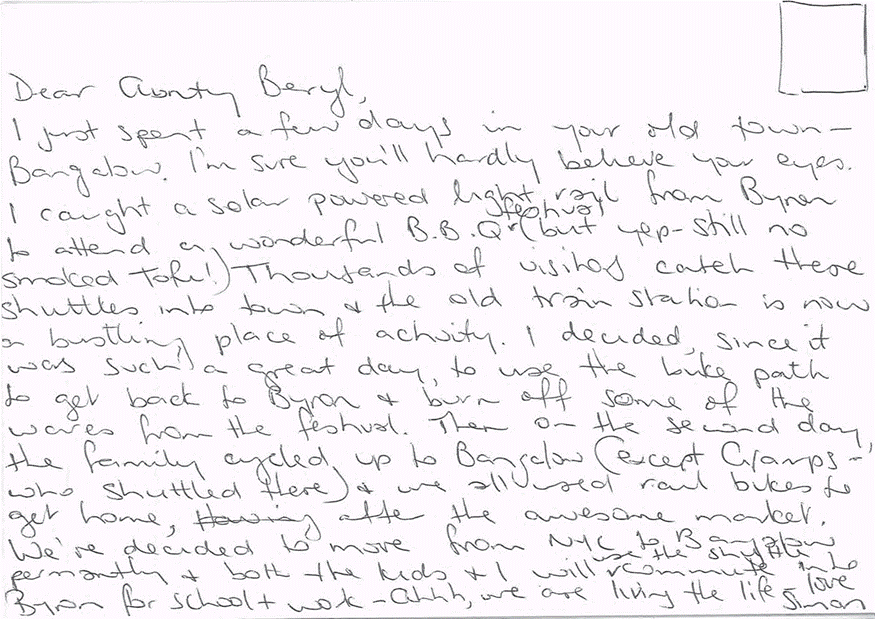 Dear Aunty Beryl,
I just spent a few days in your old town –
Bangalow. I'm sure you'll hardly believe your eyes.
I caught a solar powered light rail from Byron
festival
to attend a wonderful B.B.Q (but yep - still no
smoked Tofu!) Thousands of visitors catch these
shuttles into town & the old train station is now
a bustling place of activity. I decided, since it
was such a great day, to use the bike path
to get back to Byron & burn off some of the
wares from the festival. Then on the second day,
the family cycled up to Bangalow (except Gramps -
who shuttled there) & we all used rail bikes to
get home, after the awesome market.
We've decided to move from NYC to Bangalow
use the shuttle
permantly & both the kids & I will commute into
Byron for school & work - Ahhh, we are living the life - love
Simon